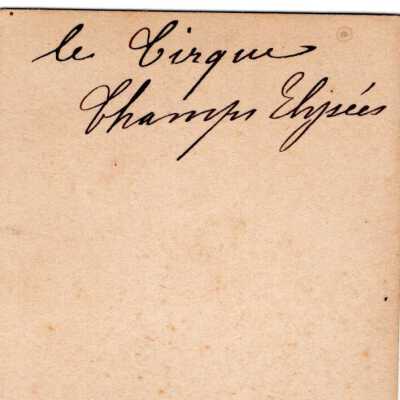 le Cirque
Champs Elysées